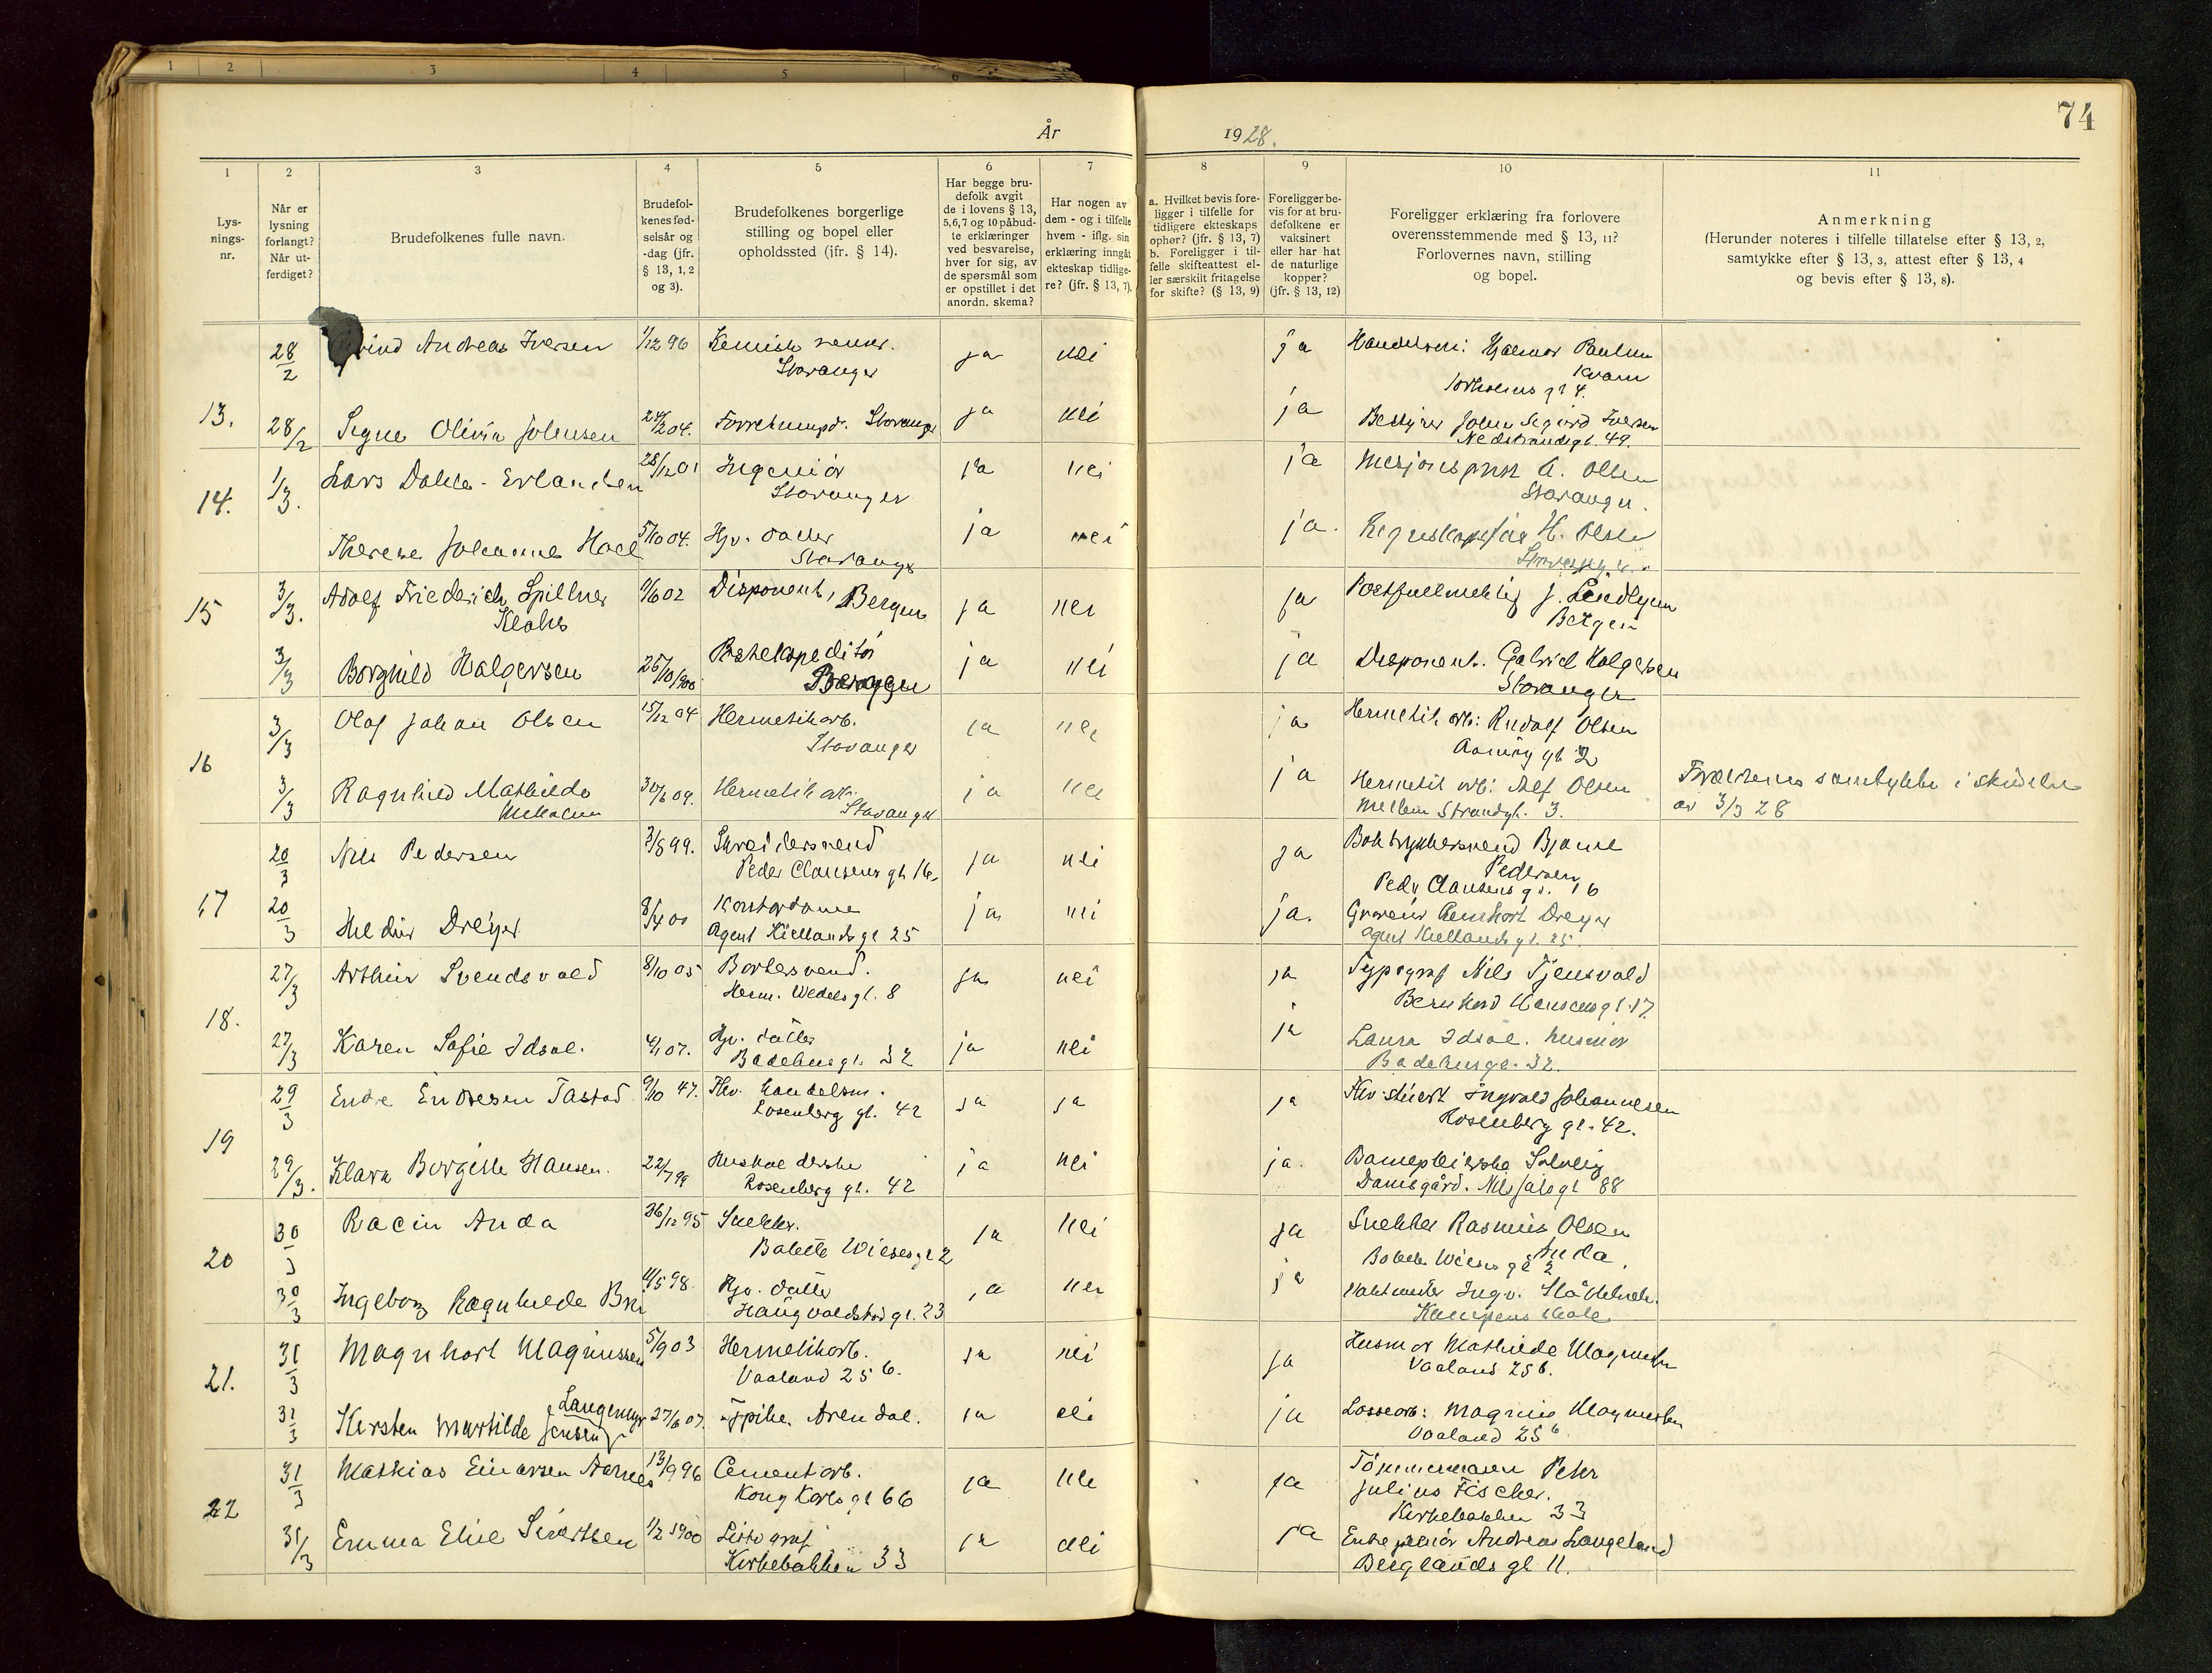 1 2 3 4 5 6
74
År 1928.
1 2 3 4 5 6 7 8 9 10 11
Lys-
nings-
nr.
Når er
lysning
forlangt?
Når ut-
ferdiget?
Brudefolkenes fulle navn.
Brudefol-
kenes fød-
selsår og
-dag (jfr.
§ 13, 1, 2
og 3).
Brudefolkenes borgerlige
stilling og bopel eller
opholdssted (jfr. § 14).
Har begge bru-
defolk avgit
de i lovens § 13,
5,6,7 og 10 påbud-
te erklæringer
ved besvarelse,
hver for sig, av
de spørsmål som
er opstillet i det
anordn. skema?
Har nogen av
dem - og i tilfelle
hvem - iflg. sin
erklæring inngåt
ekteskap tidlige-
re? (jfr. § 13, 7).
a. Hvilket bevis fore-
ligger i tilfelle for
tidligere ekteskaps
ophør? (jfr. § 13, 7)
b. Foreligger i til-
felle skifteattest el-
ler særskilt fritagelse
for skifte? (§ 13, 9)
Foreligger be-
vis for at bru-
defolkene er
vaksinert
eller har hat
de naturlige
kopper?
(jfr. § 13, 12)
Foreligger erklæring fra forlovere
overensstemmende med § 13, 11?
Forlovernes navn, stilling
og bopel.
Anmerkning
(Herunder noteres i tilfelle tillatelse efter § 13, 2,
samtykke efter § 13, 3, attest efter § 13, 4
og bevis efter § 13, 8).
28/2 Andreas Iversen 1/12 96 Kemisk
Stavanger ja nei ja Hjalmar Paulsen
Kvam
gt 4.
13. 28/2 Signe Olivia Johnsen 24/2 04. Stavanger ja nei ja Bestyrer Johan Sigurd Iversen
Nedstrandsgt. 49.
14. 1/3. Lars Dahle-Erlandsen 28/12 01 Ingeniør
Stavanger ja nei ja Misjonsprest A. Olsen
Stavanger.
Therese Johanne Hoel 5/10 04. Hjv. datter
Stavanger ja nei ja. H. Olsen
Stavanger.
15 3/3. Adolf Friederich Spillner
Klohs 9/6 02 Disponent, Bergen ja nei ja J. Lindtgren
Bergen
3/3 Borghild Halgersen 25/10 1900 Postekspeditør
Bergen ja nei ja Disponent. Gabriel Halgersen
Stavanger
16 3/3 Olaf Johan Olsen 15/12 04 Hermetikarb.
Stavanger ja nei ja Hermetik arb: Rudolf Olsen
gt 2
3/3 Ragnhild Mathilde
30/6 09. Hermetik arb.
Stavanger ja nei ja Hermetik arb: Alf Olsen
Mellem Strandgt. 3.
samtykke i skrivelse
av 3/3 28
17 20/3 Nils Pedersen 3/8 99. Skreddersvend
Peder Clausens gt 16. ja nei ja Boktrykkersvend Bjarne
Pedersen
Peder Clausens gt. 16
20/3 Dreyer 8/4 00 Kontordame
Agent Kiellands gt 25 ja nei ja. Gravør Dreyer
Agent Kiellands gt. 25.
18. 27/3 Arthur Svendsvold 8/10 05 Barbersvend.
Herm. Wedels gt. 8 ja nei ja Typograf Nils Tjensvold
Bernhard Hansens gt. 17.
27/3 Karen Sofie Idsøe. 4/1 07. Hjv. datter
Badehusgt. 32 ja nei ja Laura Idsøe. husmor
Badehusgt. 32.
19 29/3 Endre Endresen Tastad 9/10 47. Fhv. handelsm.
Rosenberg gt. 42 ja ja ja Fhv. stuert Ingvald Johannesen
Rosenberg gt. 42.
29/3. Klara Borgille Hansen. 22/7 99 Husholderske
Rosenberg gt. 42 ja nei ja. Barnepleierske Solveig
Damsgård. Nils Juels gt 88
20 30/3 Racin Anda 26/12 95 Snekker.
Babette Wieses gt 2 ja nei ja Snekker Rasmus Olsen
Anda.
Babette Wieses gt 2
30/3 Ingeborg Ragnhilde 11/5 98. Hjv. datter
Haugvaldstads gt. 23 ja nei ja Vaktmester Ingv.
Kampens skole
21. 31/3 Magnhart Magnussen 5/9 03 Hermetikarb.
Vaaland 25 b. ja nei ja Husmor Mathilde Magnussen
Vaaland 25 b.
31/3 Kirsten Martilde Jensen Langemyr 27/6 07. Arendal. ja nei ja Lossearb: Magnus Magnussen
Vaaland 25 b
22 31/3 Mathias Einarsen Aarnes 13/9 96 Cementarb.
Kong Karls gt 66 ja nei ja Tömmermann Peter
Julius Fischer.
Kirkebakken 33
31/3 Emma Elise Sivertsen 1/2 1900 Litograf
Kirkebakken 33 ja nei ja Entreprenør Andreas Langeland
Berglands gt 11.